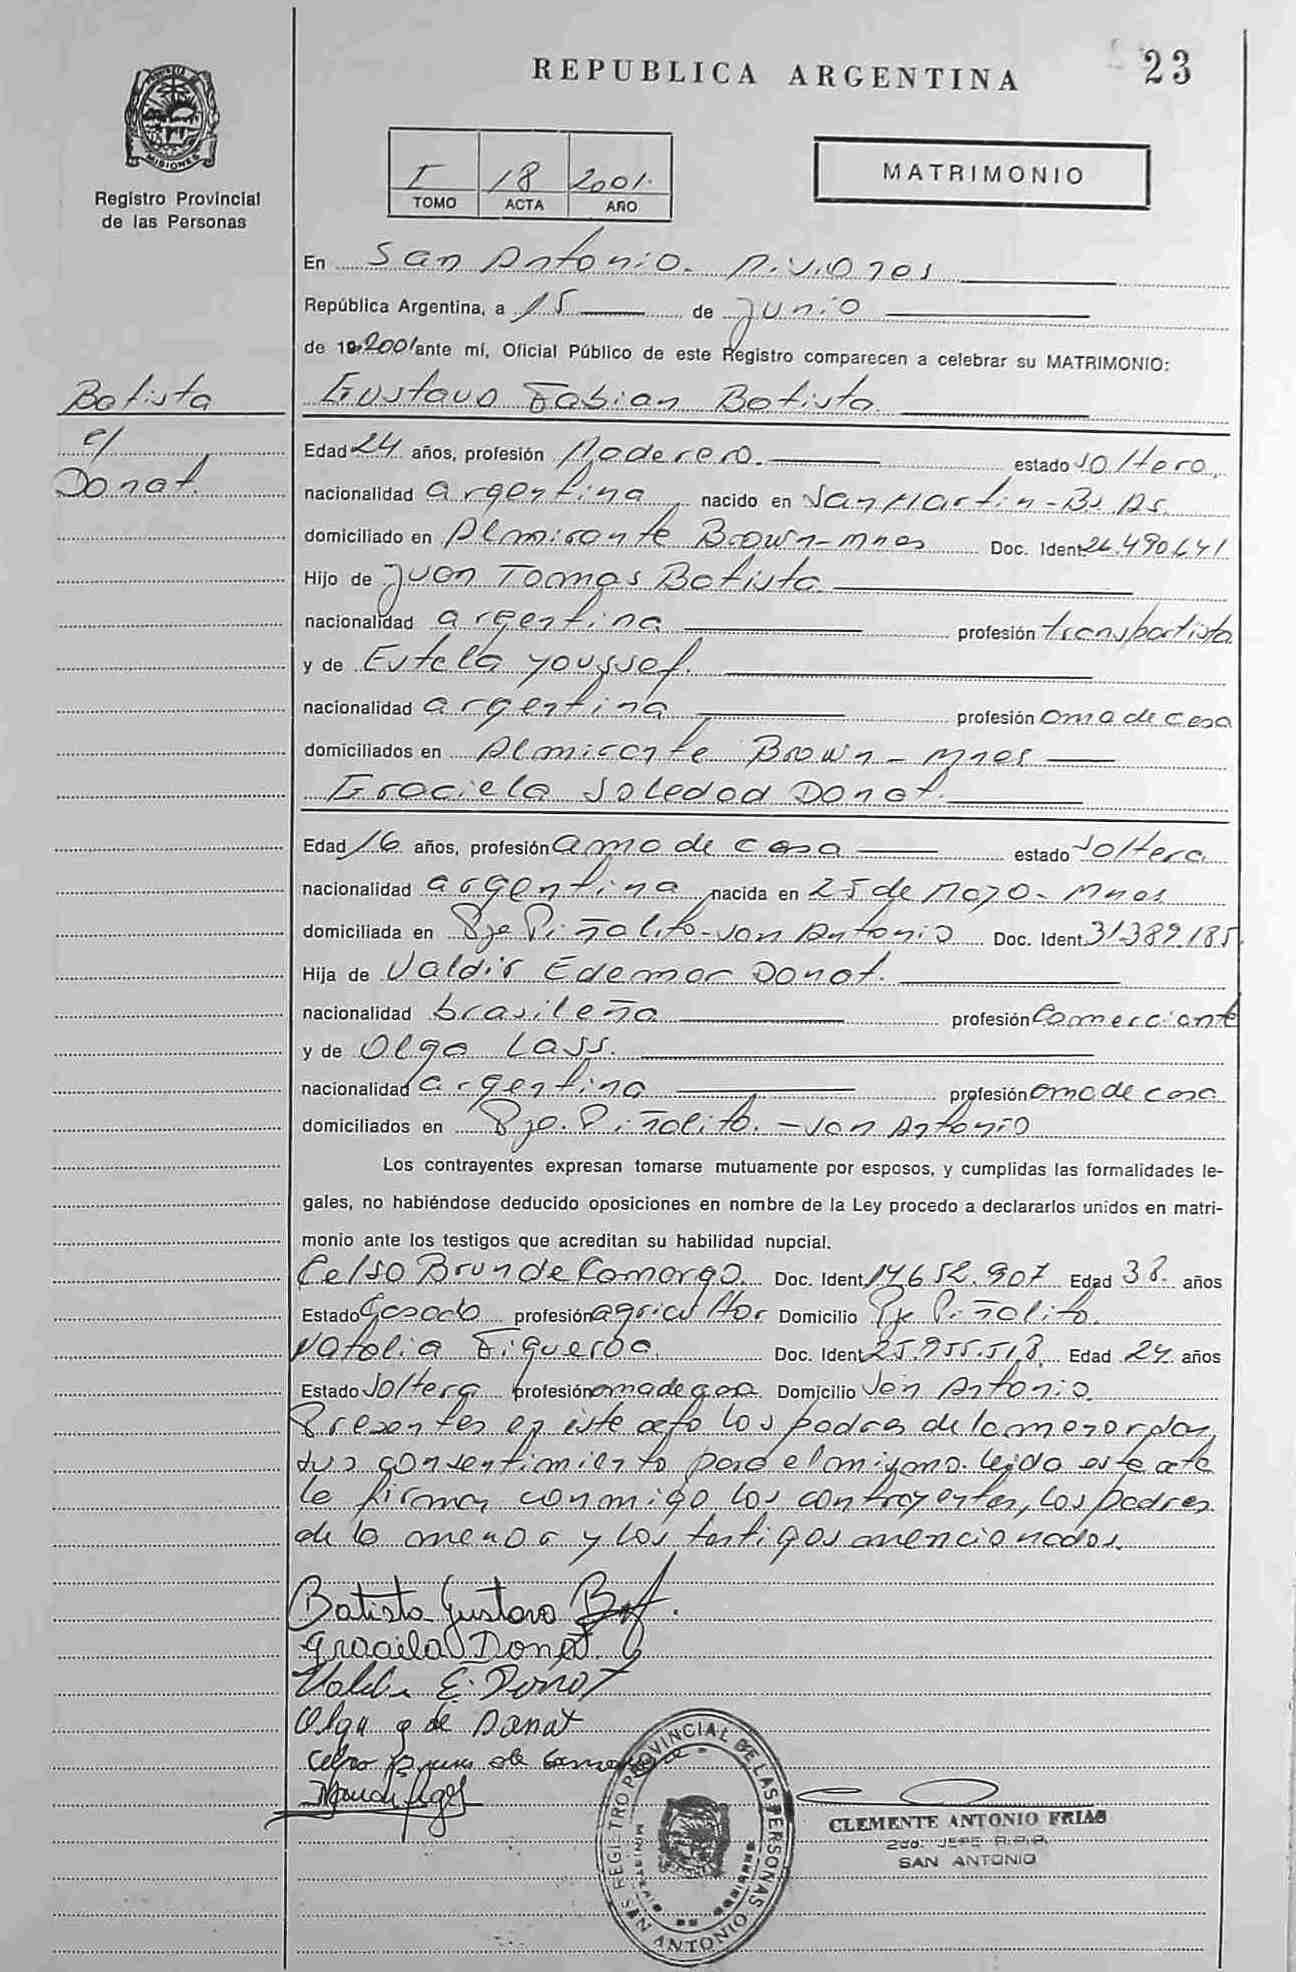 REPUBLICA ARGENTINA
23
PROVINCIA DE
MISIONES
Registro Provincial
de las Personas
I 18 2001.
TOMO ACTA AÑO
MATRIMONIO
En San Antonio. Misiones
República Argentina, a 15 de junio
de 19 2001 ante mí, Oficial Público de este Registro comparecen a celebrar su MATRIMONIO:
Batista
c/
Donat.
Gustavo Fabian Batista.
Edad 24 años, profesión Maderero. estado soltero,
nacionalidad argentina nacido en San Martin - Bs. As.
domiciliado en Almirante Brown - Mnes Doc. Ident 26.490.641
Hijo de Juan Tomas Batista.
nacionalidad argentina profesión transportista
y de Estela Youssef.
nacionalidad argentina profesión ama de casa
domiciliados en Almirante Brown - Mnes
Graciela Soledad Donat.
Edad 16 años, profesión ama de casa estado soltera
nacionalidad argentina nacida en 25 de Mayo - Mnes
domiciliada en Pje Piñalito - San Antonio Doc. Ident 31.389.185.
Hija de Valdir Edemar Donat.
nacionalidad brasileña profesión Comerciante
y de Olga Lass.
nacionalidad argentina profesión ama de casa
domiciliados en Pje. Piñalito. - San Antonio
Los contrayentes expresan tomarse mutuamente por esposos, y cumplidas las formalidades le-
gales, no habiéndose deducido oposiciones en nombre de la Ley procedo a declararlos unidos en matri-
monio ante los testigos que acreditan su habilidad nupcial.
Celso Brun de Camargo. Doc. Ident 17.652.907 Edad 38. años
Estado Casado profesión agricultor Domicilio Pje Piñalito.
Natalia Figueroa. Doc. Ident 25.955.518. Edad 24 años
Estado Soltera profesión ama de casa Domicilio San Antonio.
Presentes en este acto los padres de la menor dan
sus consentimiento para el mismo. leida este acta
la firman conmigo los contrayentes, los padres
de la menor y los testigos mencionados.
Batista Gustavo
Graciela Donat.
Valdir E. Donat
Olga g de Danat
Celso Brun de Camargo
REGISTRO PROVINCIAL DE LAS PERSONAS
MISIONES
SAN ANTONIO
CLEMENTE ANTONIO FRIAS
2do. JEFE R.P.P.
SAN ANTONIO